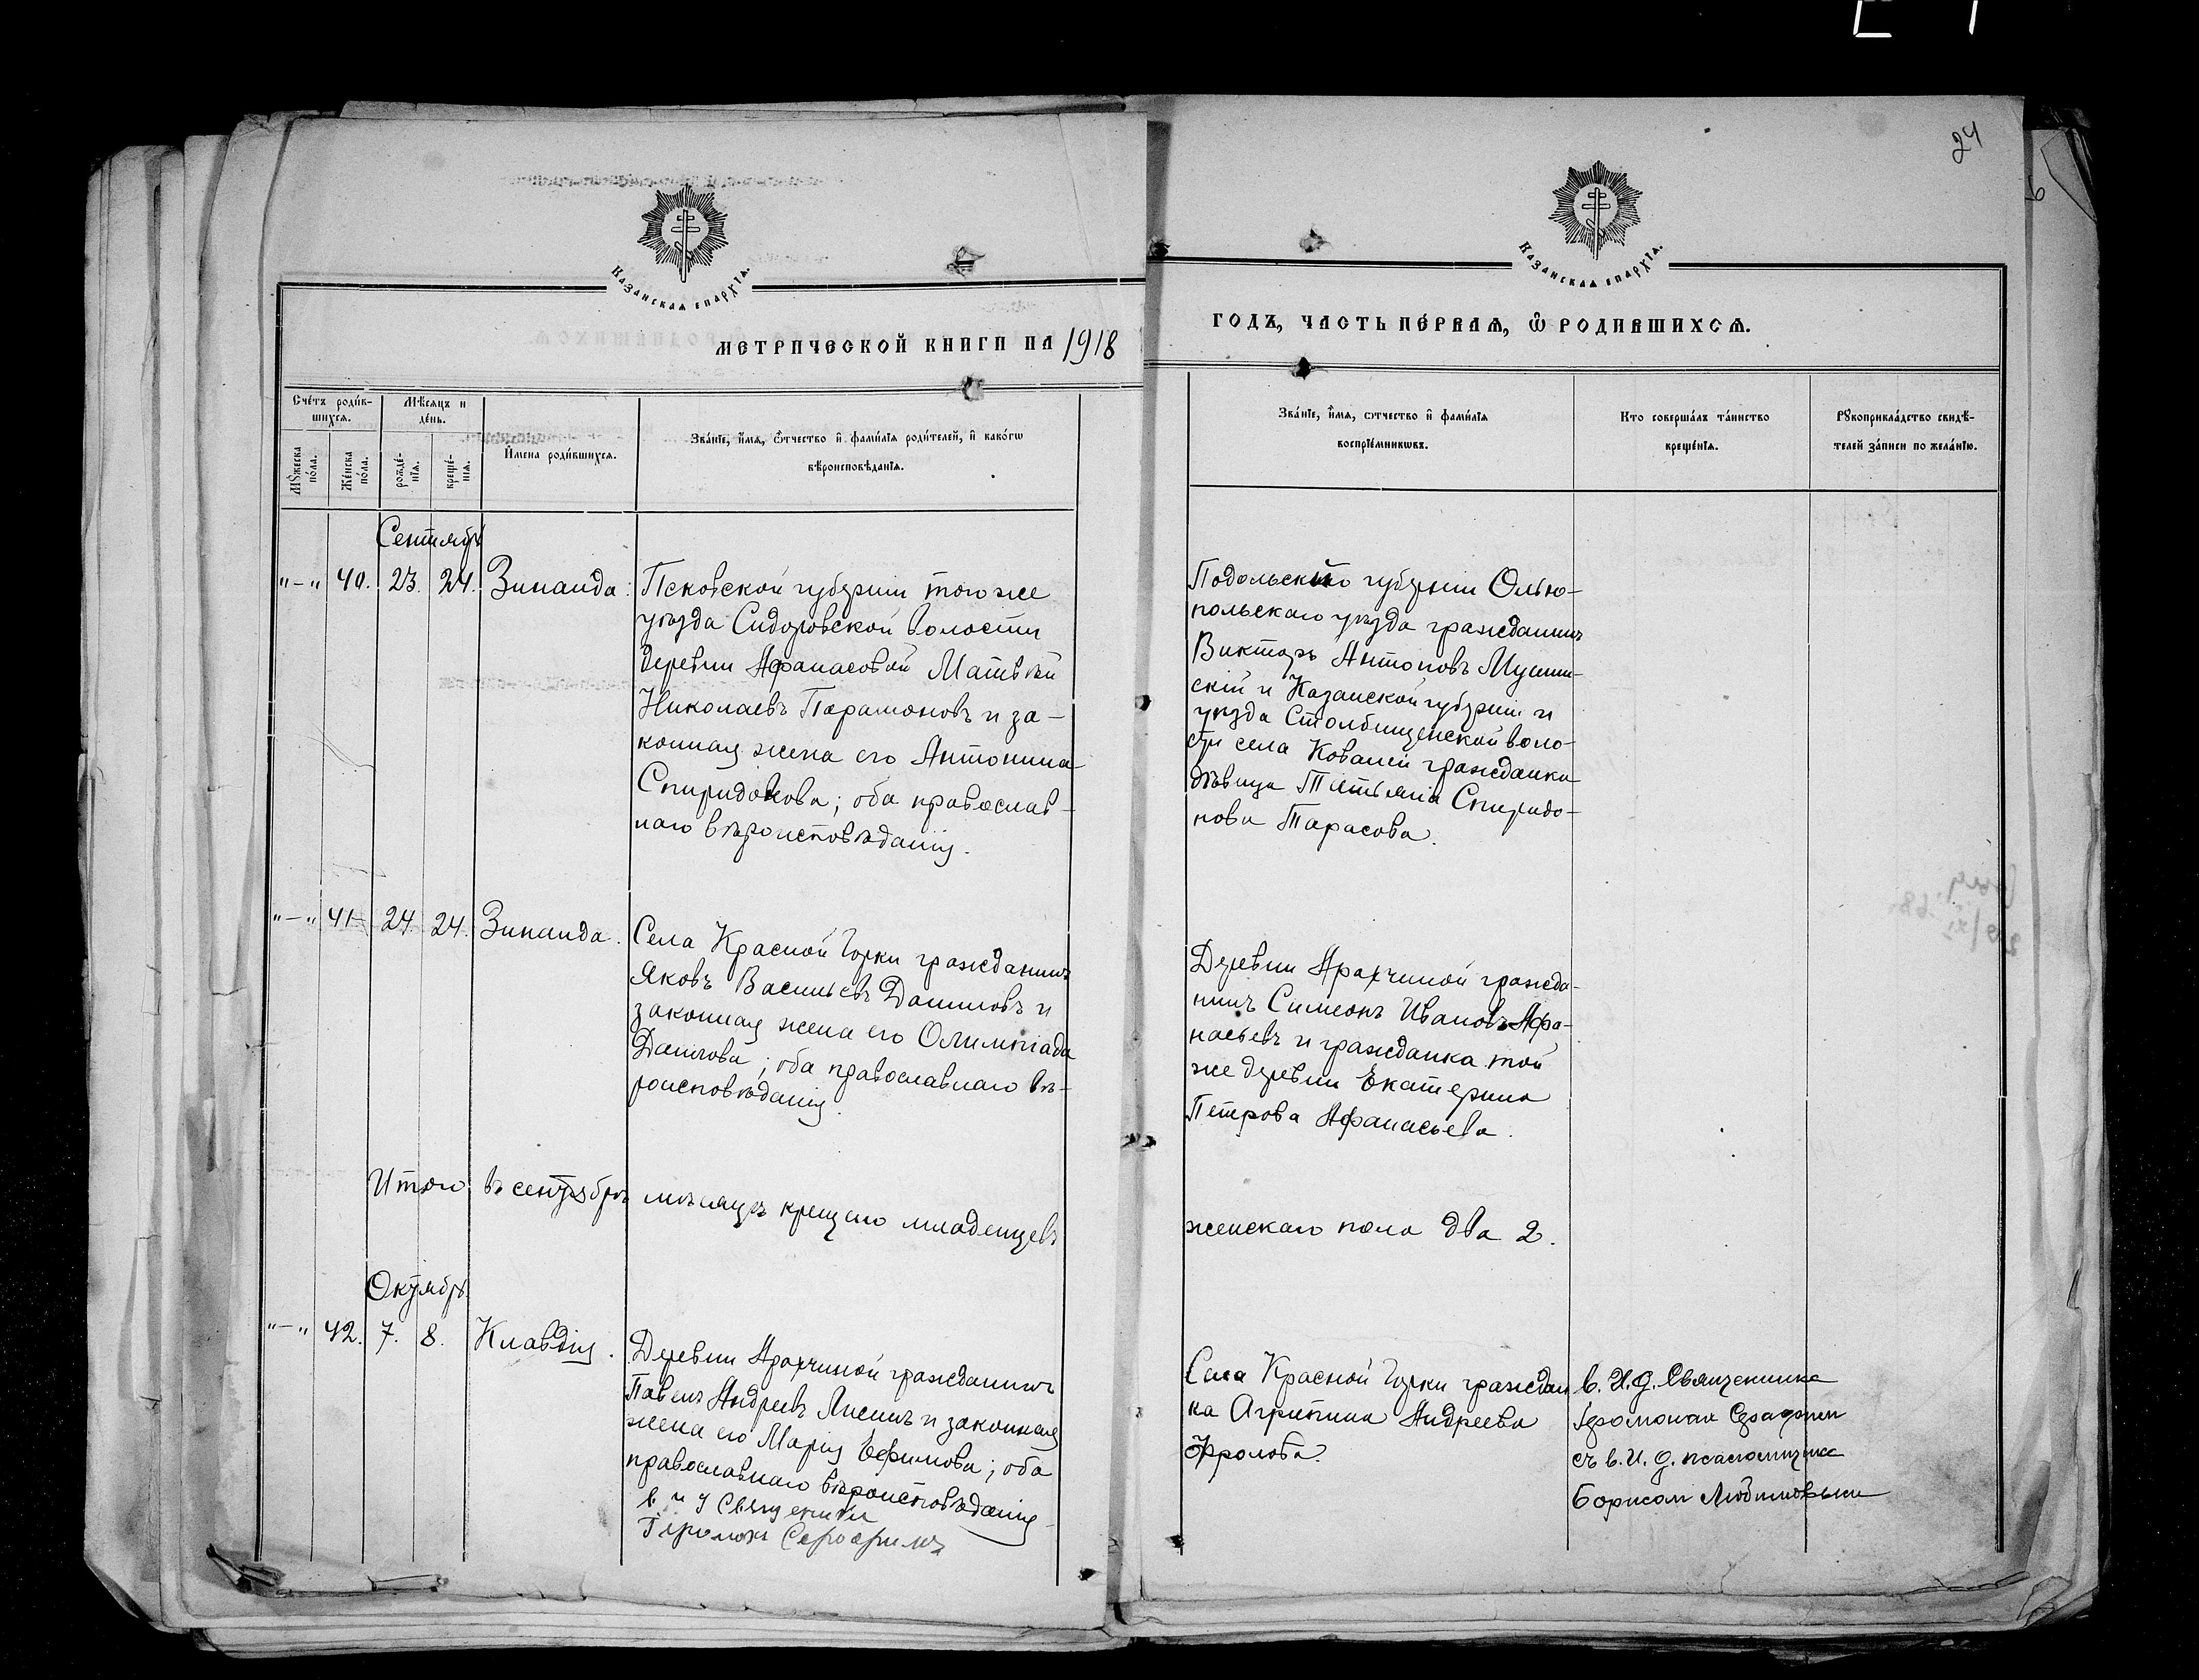 24
6
Казанская епархїѧ.
Казанская епархїѧ.
метрической книги на 1918
годъ, часть пе́рваѧ, ѡ҆ родившихсѧ.
Сче́тъ роди́в-
шихсѧ.
Мѣ́сяцъ и
де́нь.
Мꙋ́жеска
по́ла.
Же́нска
по́ла.
рожде́-
нїѧ.
креще́-
нїѧ.
И҆мена роди́вшихсѧ.
Зва́нїе, и҆́мѧ, ѻ҆́тчество и҆ фами́лїѧ роди́телей, и҆ како́гѡ
вѣроисповѣ́данїѧ.
Зва́нїе, и҆́мѧ, ѻ҆тчество и҆ фами́лїѧ
воспрїе́мниковъ.
Кто соверша́лъ та́инство
креще́нїѧ.
Рꙋкоприкла́дство свидѣ́-
телей за́писи по жела́нїю.
Сентябрь
"-" 40. 23. 24. Зинаида.
Псковской губернiи того же
уѣзда Сидоровской волости
деревни Афанасовой Матвѣй
Николаевъ Парамоновъ и за-
конная жена его Антонина
Спиридонова; оба православ-
наго вѣроисповѣданія.
Подольской губернiи Ольго-
польскаго уѣзда гражданинъ
Викторъ Антоновъ
и Казанской губернiи и
уѣзда Столбищенской воло-
сти села Ковалей гражданка
дѣвица Татьяна Спиридо-
нова Тарасова.
"-" 41 24. 24. Зинаида.
Села Красной Горки гражданинъ
Яковъ Васильевъ Даниловъ и
законная жена его Олимпіада
Данилова; оба православнаго вѣ-
роисповѣданія.
Деревни Арахчиной гражда-
нинъ Симеонъ Ивановъ Афа-
насьевъ и гражданка той
же деревни Екатерина
Петрова Афанасьева.
Итого въ сентябрѣ мѣсяцѣ крещено младенцевъ
женскаго пола два 2.
Октябрь.
"-" 42. 7. 8. Клавдія.
Деревни Арахчиной гражданинъ
Павелъ Андреевъ Лисинъ и законная
жена его Марія Ефимова; оба
православнаго вѣроисповѣданія
Села Красной Горки граждан
ка Агрипина Андреева
Фролова.
в. И. д. Священника
Iеромонах Серафим
съ в. И. д. псаломщика
Борисом Любимовым
в и д Священника
Iеромонх Серафимъ